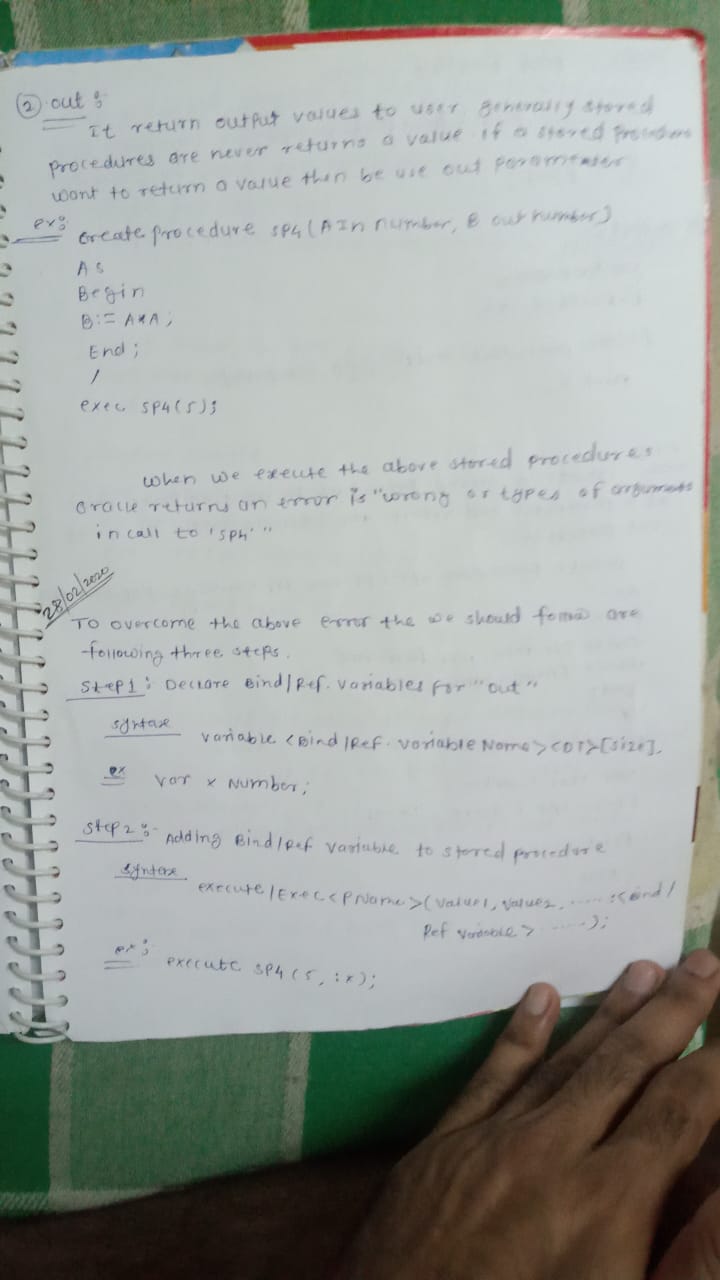 ② out :
It return output values to user generally stored
procedures are never returns a value if a stored procedures
want to return a value then be use out parameter
ex:
create procedure sp4 (A In number, B out number)
As
Begin
B:= A*A;
End;
/
exec sp4(5);
when we execute the above stored procedures
oracle returns an error is "wrong or types of arguments
in call to 'sp4' "
28/02/2020
To overcome the above error the we should follow are
following three steps.
Step1: Declare Bind/Ref. variables for "out"
syntax
variable <Bind/Ref. variable Name> <DT>[size].
ex
var x Number;
Step2:- Adding Bind/Ref variable to stored procedure
syntax
execute/Exec <PName>(value1, value2, ..... :<Bind/
Ref variable> .....);
ex:
execute sp4 (5, :x);